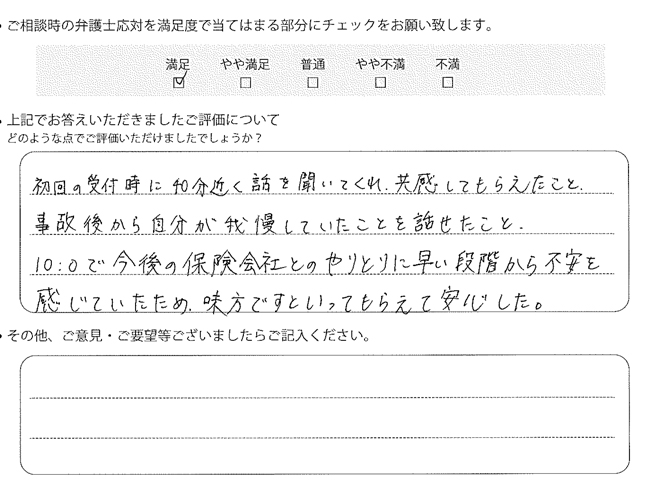 ・ご相談時の弁護士応対を満足度で当てはまる部分にチェックをお願い致します。
満足 やや満足 普通 やや不満 不満
☑ □ □ □ □
・上記でお答えいただきましたご評価について
どのような点でご評価いただけましたでしょうか？
初回の受付時に40分近く話を聞いてくれ、共感してもらえたこと、
事故後から自分が我慢していたことを話せたこと、
10:0で今後の保険会社とのやりとりに早い段階から不安を
感じていたため、味方ですといってもらえて安心した。
・その他、ご意見・ご要望等ございましたらご記入ください。